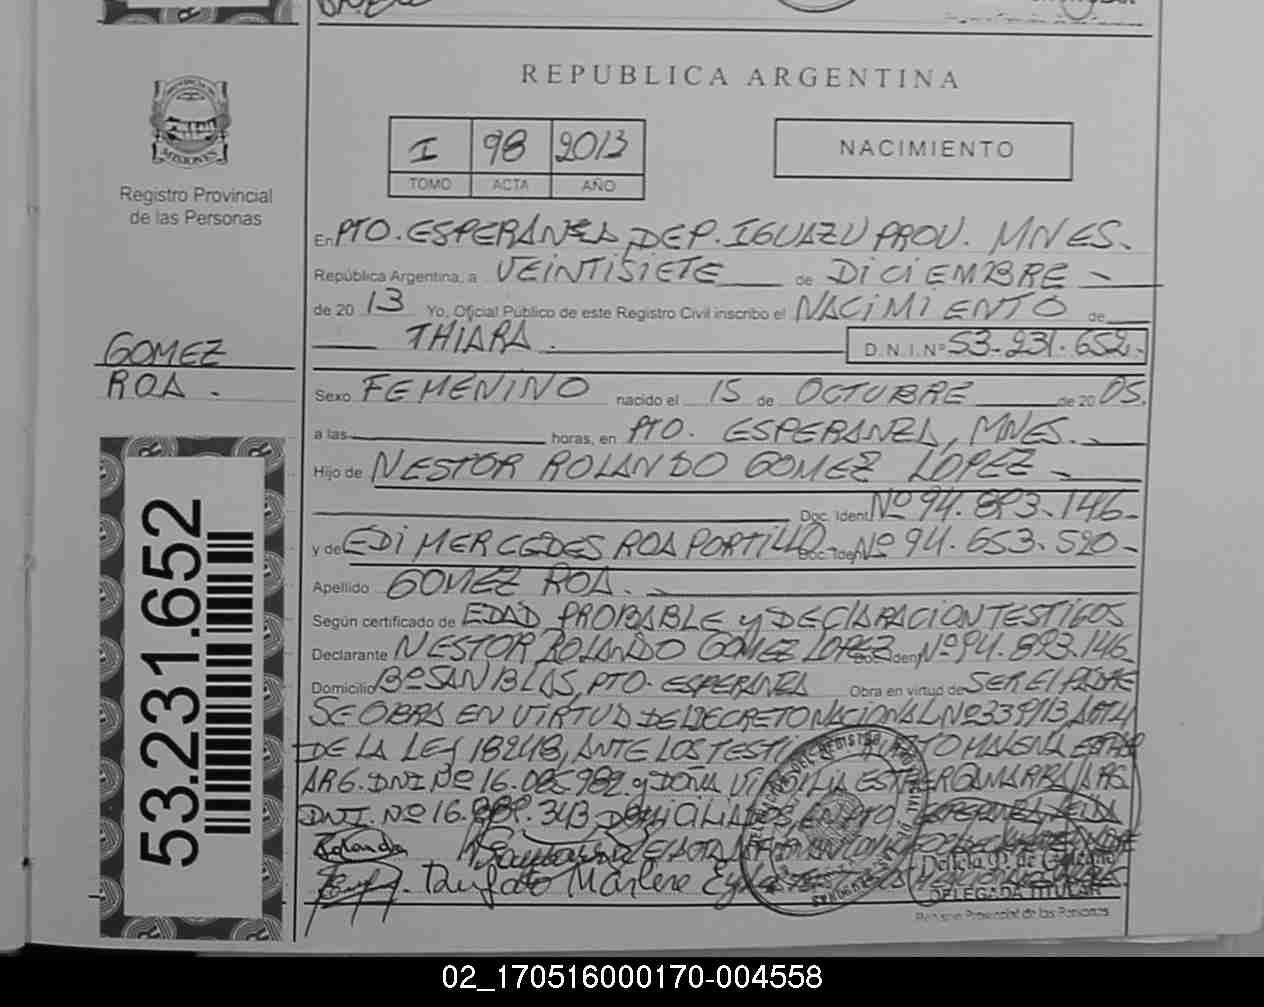 REPUBLICA ARGENTINA
PROVINCIA DE
MISIONES
Registro Provincial
de las Personas
I 98 2013
TOMO ACTA AÑO
NACIMIENTO
En PTO. ESPERANZA, DEP. IGUAZU PROV. MNES.
República Argentina, a VEINTISIETE de DICIEMBRE -
de 20 13 Yo, Oficial Público de este Registro Civil inscribo el NACIMIENTO de
THIARA. D.N.I. Nº 53.231.652.-
GOMEZ
ROA.
Sexo FEMENINO nacido el 15 de OCTUBRE de 20 05.
a las horas, en PTO. ESPERANZA, MNES.
Hijo de NESTOR ROLANDO GOMEZ LOPEZ -
Doc. Ident. Nº 94.893.146-
y de EDI MERCEDES ROA PORTILLO Doc. Iden Nº 94.653.520-
Apellido GOMEZ ROA.
Según certificado de EDAD PROBABLE y DECLARACION TESTIGOS
Declarante NESTOR ROLANDO GOMEZ LOPEZ Doc. Iden Nº 94.893.146
Domicilio Bº SAN BLAS, PTO. ESPERANZA Obra en virtud de SER El PADRE
SE OBRA EN VIRTUD DEL DECRETO NACIONAL Nº 339/13
DE LA LEY 18248, ANTE LOS
ARG. DNI Nº 16.085.982. y DOÑA VIRGILIA ESTHER GAMARRA ARG.
DNI. Nº 16. .343 DOMICILIADOS EN PTO ESPERANZA
Rolando
Marlene
DELEGADA TITULAR
Registro Provincial de las Personas
53.231.652
02_170516000170-004558